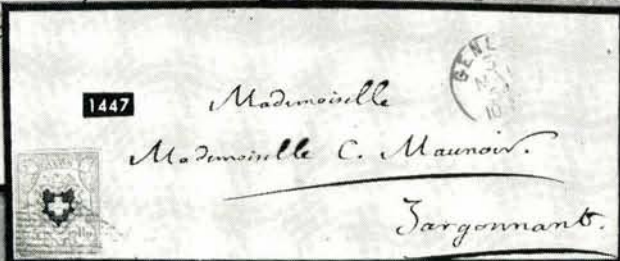 GENÈ
1447
Mademoiselle
Mademoiselle C. Maunoir.
Jargonnant.